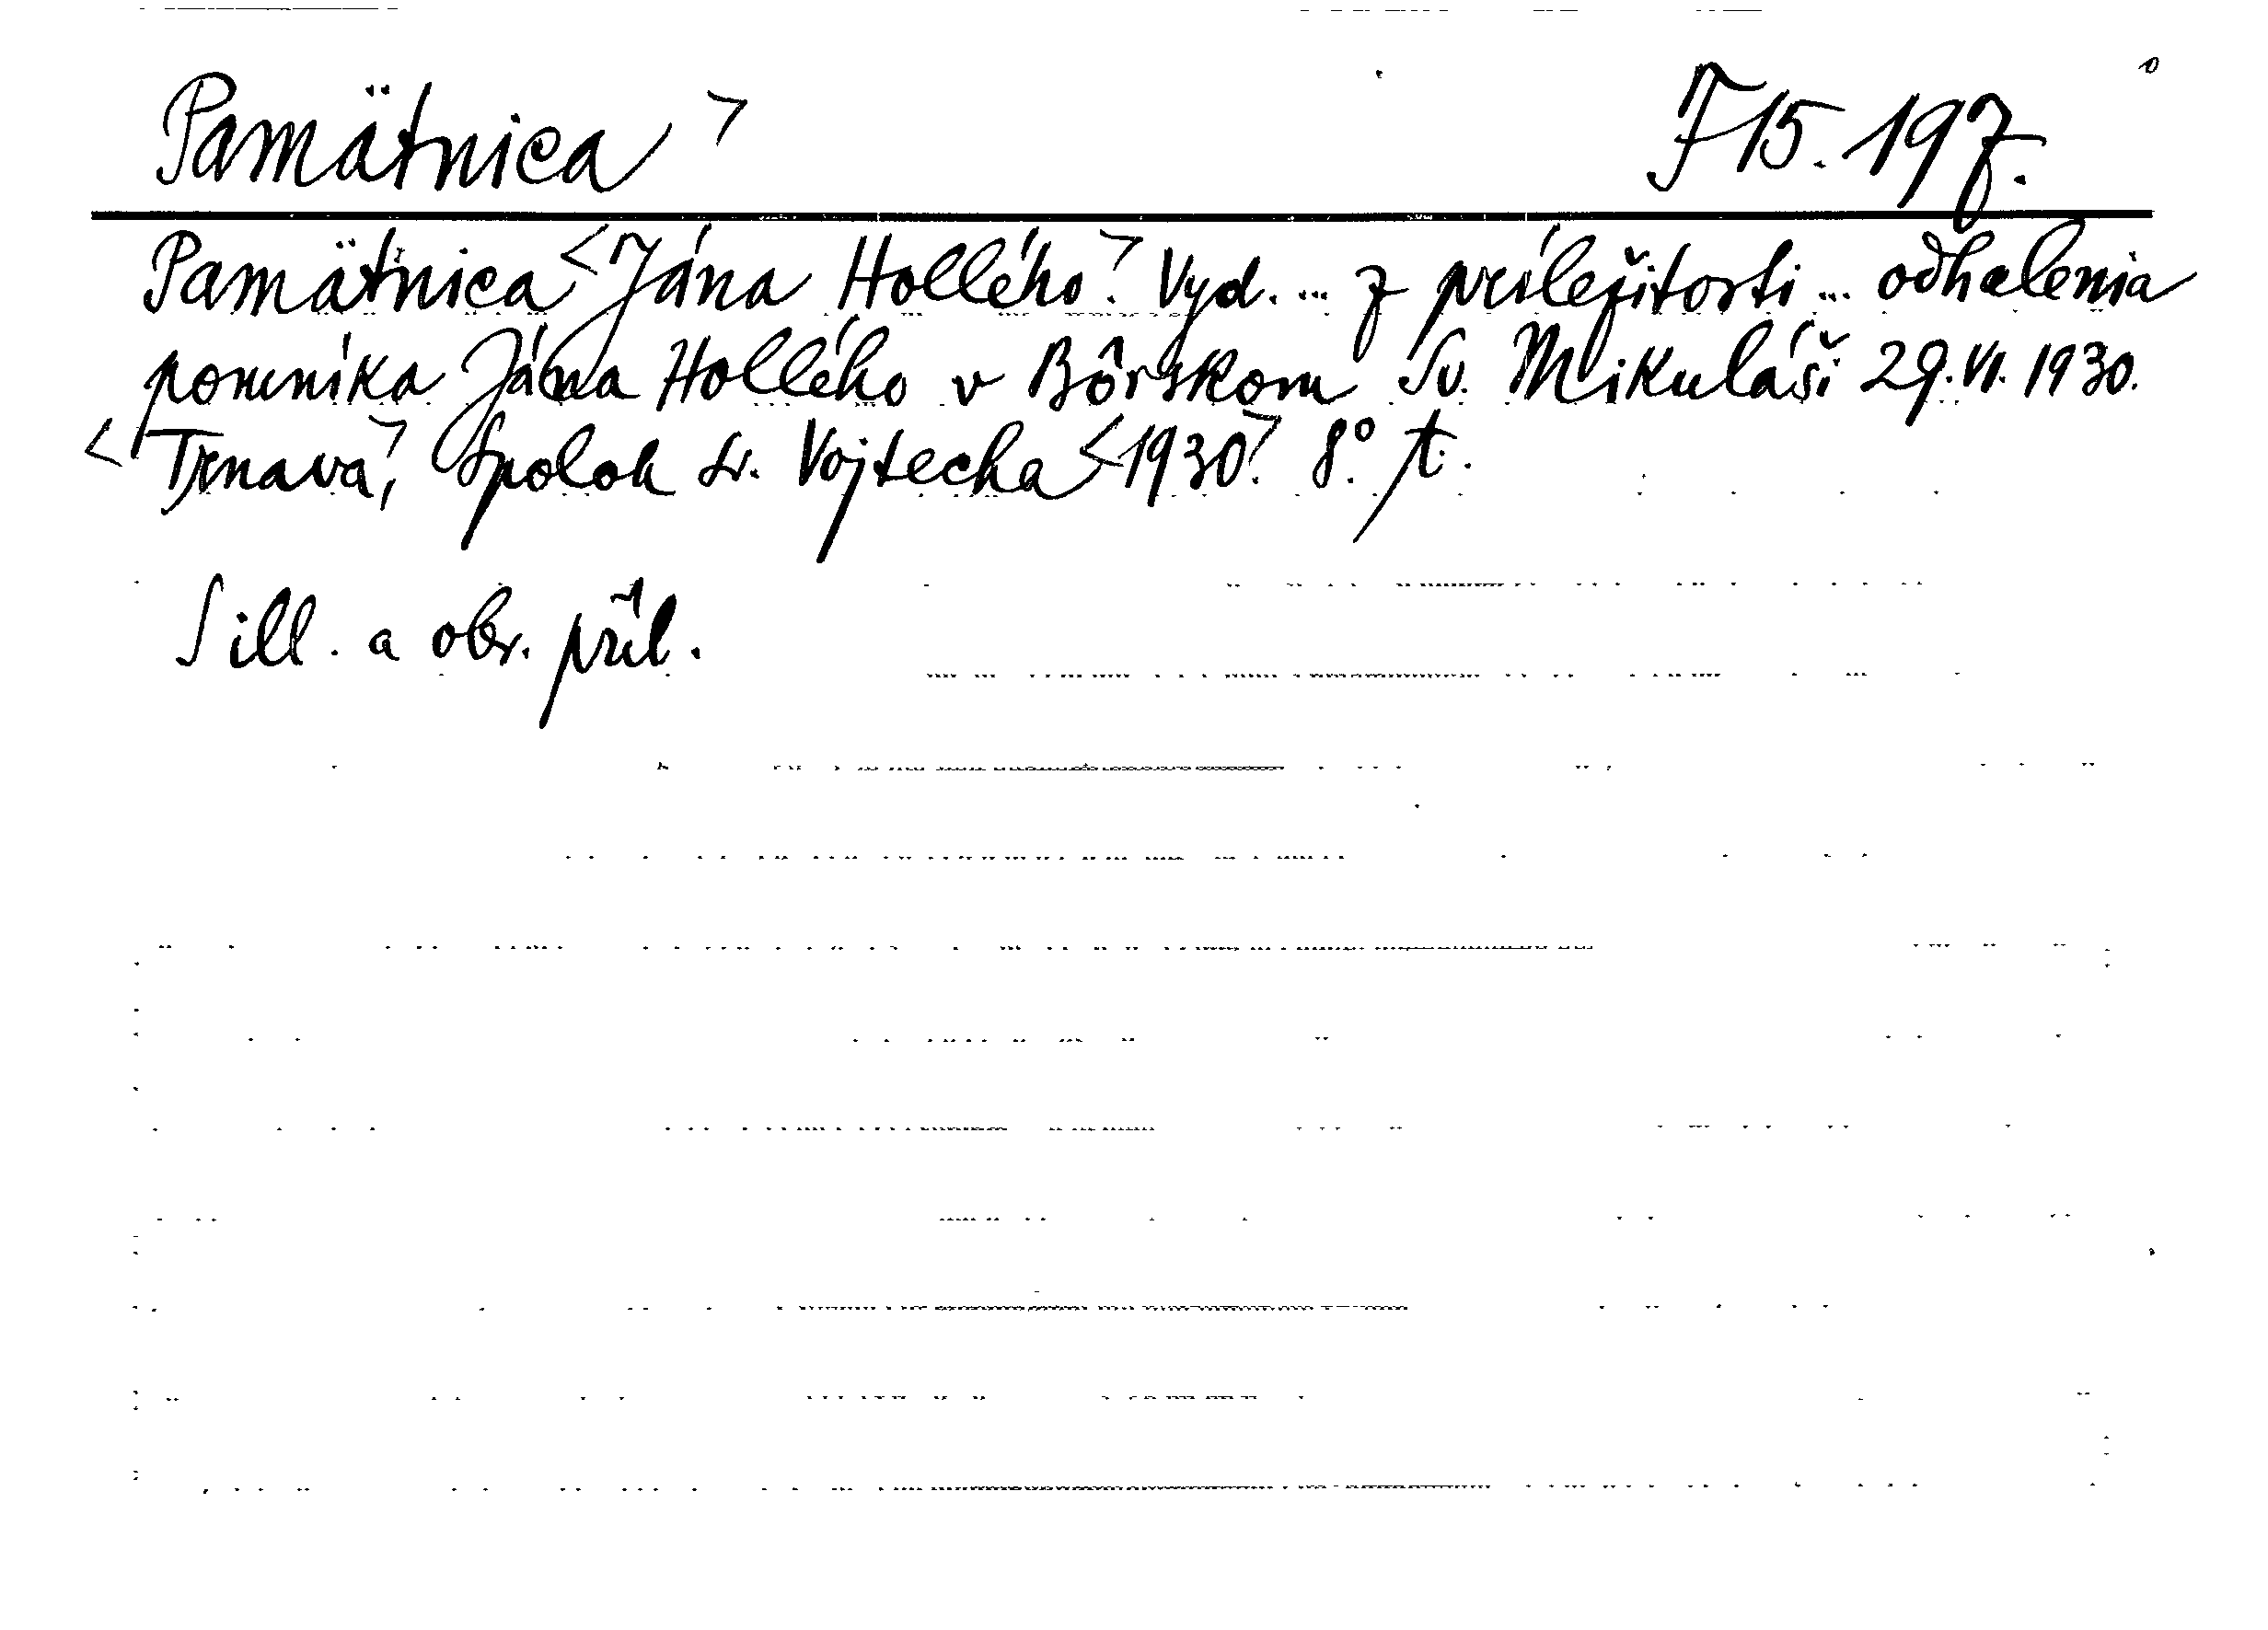 Pamätnica > F 15.197.
Pamätnica <Jána Hollého>. Vyd. ... z príležitosti ... odhalenia
pomníka Jána Hollého v Bôrskom Sv. Mikuláši 29. VI. 1930.
<Trnava>, Spolok sv. Vojtecha <1930>. 8°. t.
S ill. a obr. příl.